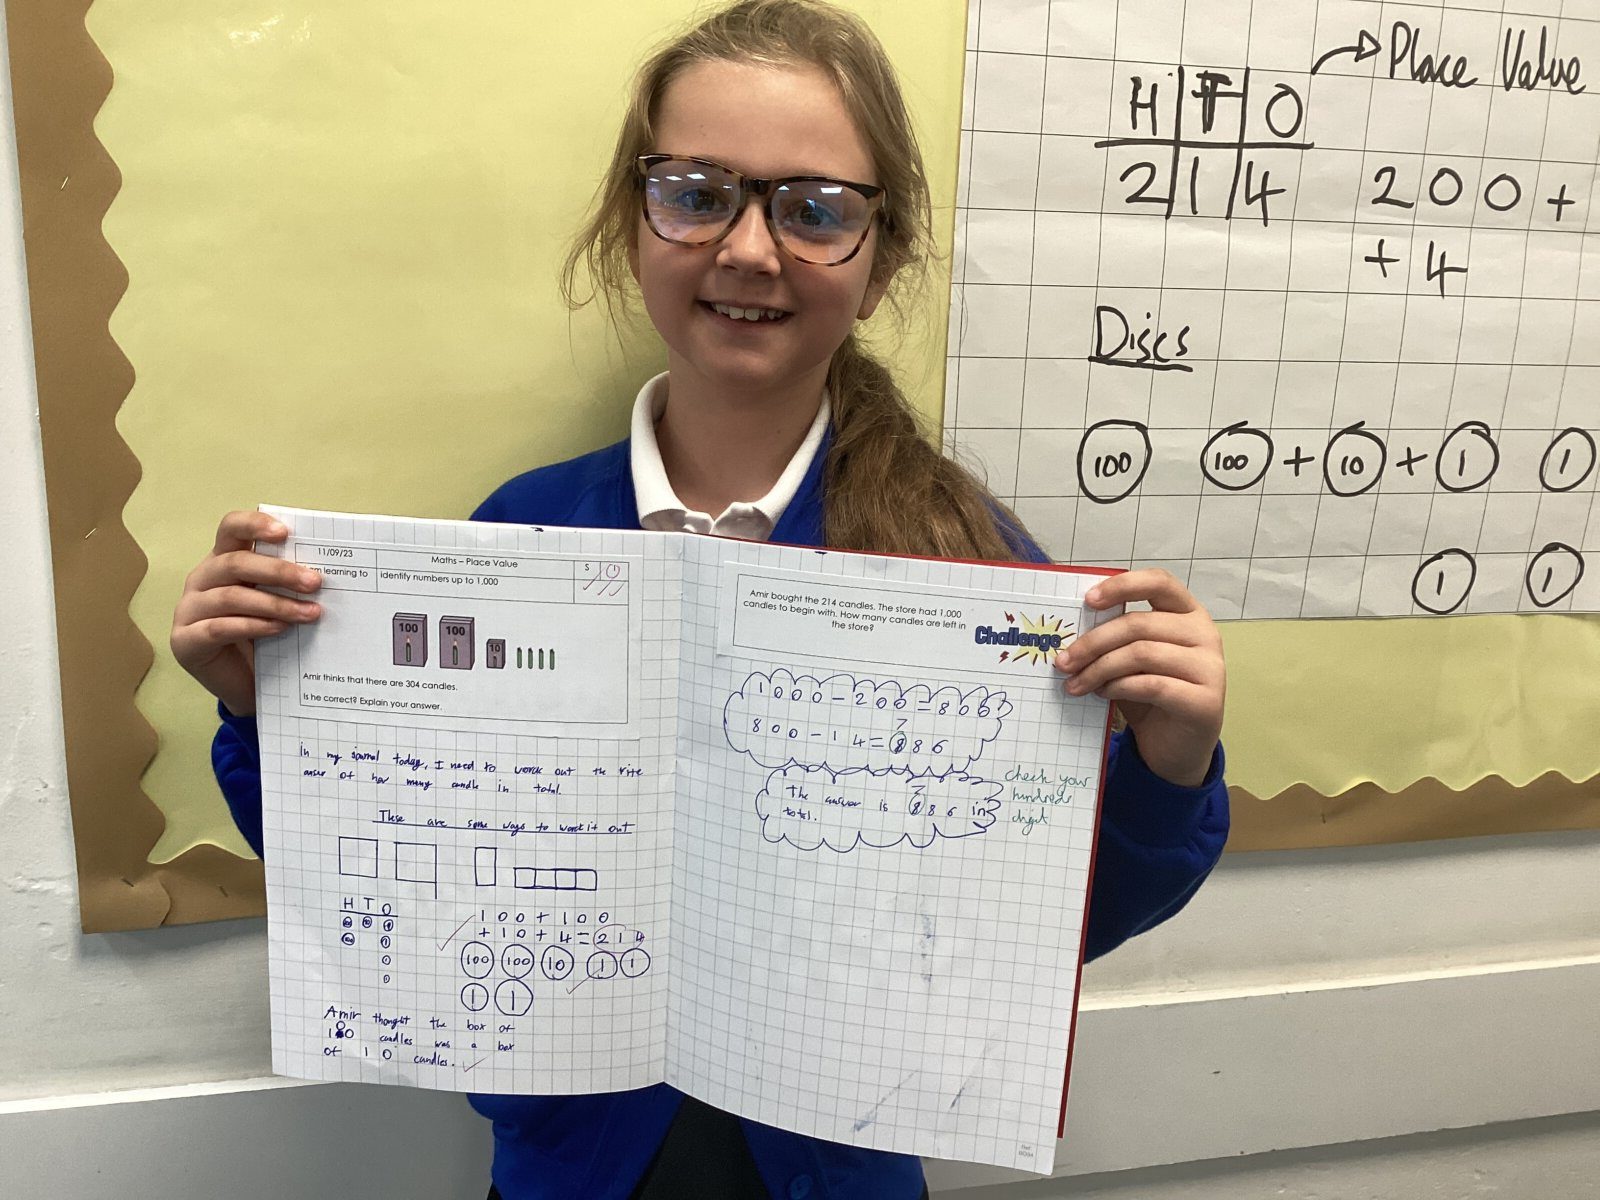 Place Value
H T O
2 1 4
200 +
+ 4
Discs
100 100 + 10 + 1 1
1 1
11/09/23
Maths – Place Value
S
learning to
identify numbers up to 1,000
100 100 10
Amir thinks that there are 304 candles.
Is he correct? Explain your answer.
in my journal today, I need to work out the rite
anser of how many candle in total.
These are some ways to work it out
H T O
100 10 1
100 1
1
1
100 + 100
+ 10 + 4 = 214
100 100 10 1 1
1 1
Amir thought the box of
100 candles was a box
of 10 candles.
Amir bought the 214 candles. The store had 1,000
candles to begin with. How many candles are left in
the store?
Challenge
1000 - 200 = 800
7
800 - 14 = 886
7
The answer is 886 in
total.
check your
hundreds
digit